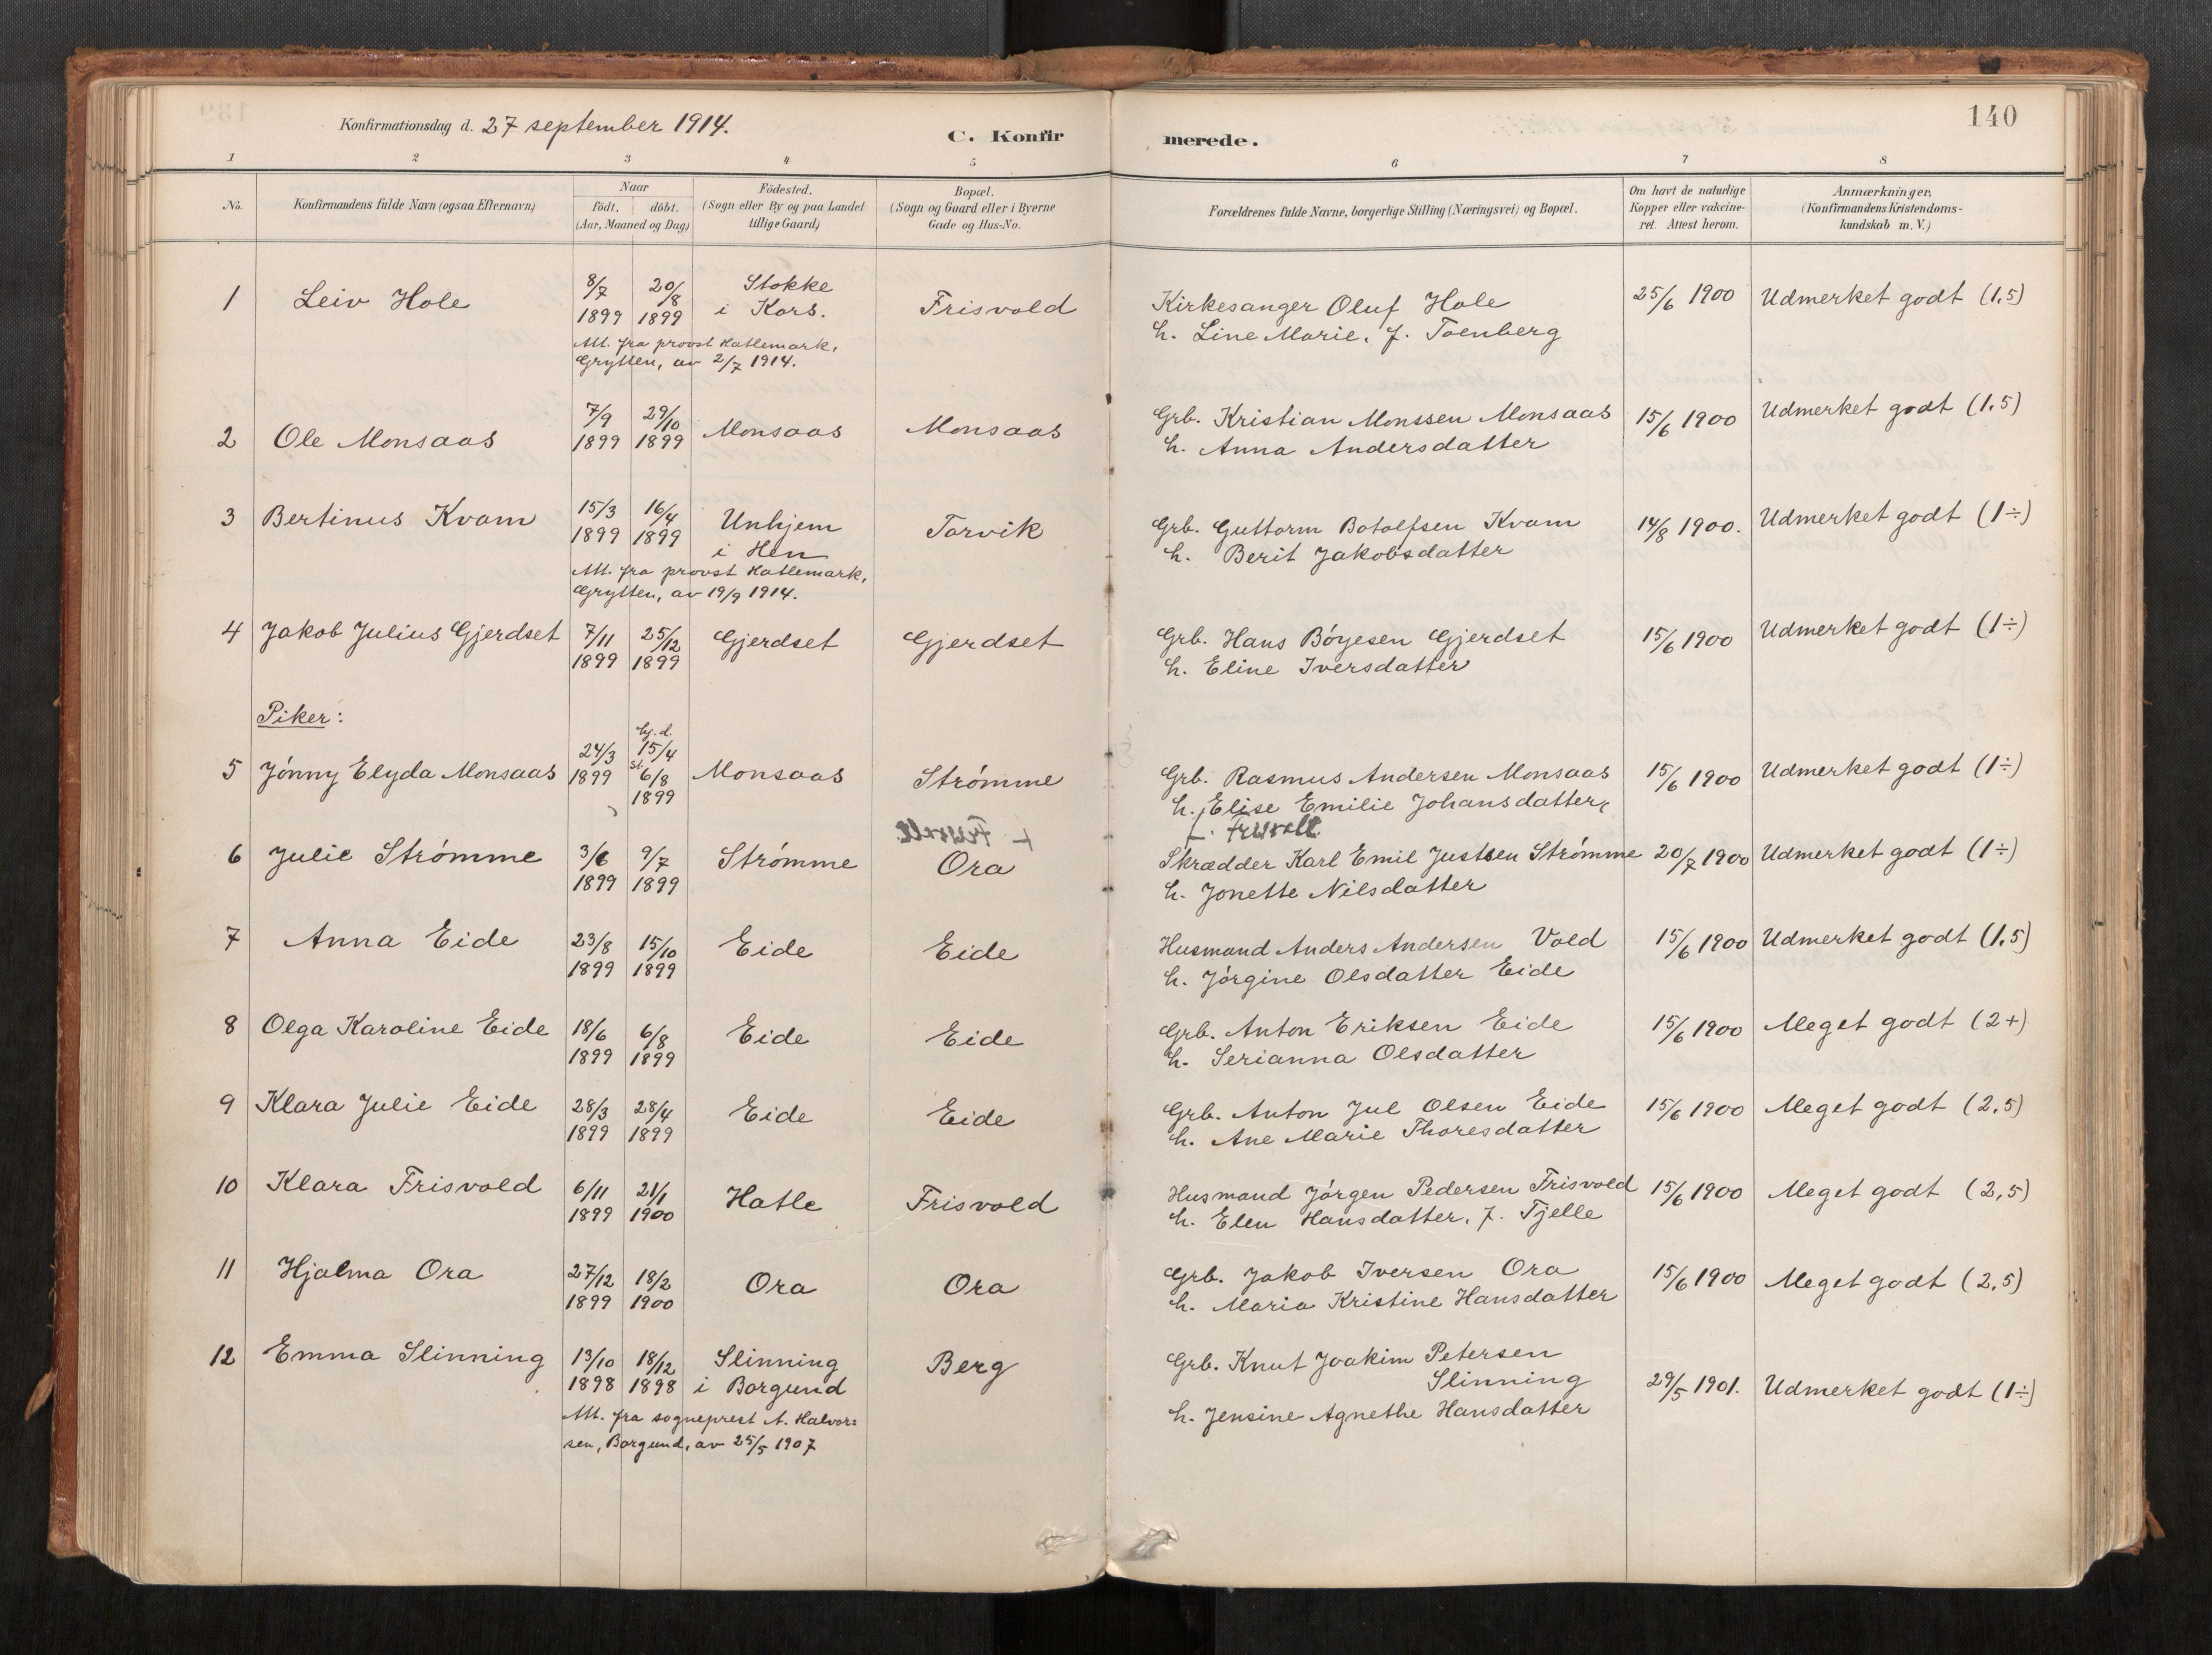 Konfirmationsdag d. 27 september 1914.
C. Konfirmerede.
140
1 2 3 4 5 6 7 8
No.
Konfirmandens fulde Navn (ogsaa Efternavn)
Naar
födt. döbt.
(Aar, Maaned og Dag)
Födested.
(Sogn eller By og paa Landet
tillige Gaard)
Bopæl.
(Sogn og Gaard eller i Byerne
Gade og Hus-No.
Forældrenes fulde Navne, borgerlige Stilling (Næringsvei) og Bopæl.
Om havt de naturlige
Kopper eller vakcine-
ret. Attest herom.
Anmærkninger.
(Konfirmandens Kristendoms-
kundskab m. V.)
1 Leiv Hole 8/7 1899 20/8 1899 Stokke i Kors. Frisvold
Att. fra provst Hatlemark,
Grytten, av 2/7 1914.
Kirkesanger Oluf Hole
h. Line Marie, f. Toenberg
25/6 1900 Udmerket godt (1,5)
2 Ole Monsaas 7/9 1899 29/10 1899 Monsaas Monsaas
Grb. Kristian Monssen Monsaas
h. Anna Andersdatter
15/6 1900 Udmerket godt (1,5)
3 Bertinus Kvam 15/3 1899 16/4 1899 Unhjem i Hen Torvik
Att. fra provst Hatlemark,
Grytten, av 19/9 1914.
Grb. Guttorm Botolfsen Kvam
h. Berit Jakobsdatter
14/8 1900. Udmerket godt (1÷)
4 Jakob Julius Gjerdset 7/11 1899 25/12 1899 Gjerdset Gjerdset
Grb. Hans Bøyesen Gjerdset
h. Eline Iversdatter
15/6 1900 Udmerket godt (1÷)
Piker:
5 Jónny Elyda Monsaas 24/3 1899 hj. d. 15/4 st. 6/8 1899 Monsaas Strómme
Grb. Rasmus Andersen Monsaas
h. Elise Emilie Johansdatter,
f. Frisvoll.
15/6 1900 Udmerket godt (1÷)
6 Julie Strómme 3/6 1899 9/7 1899 Strómme Ora
Skrædder Karl Emil Justsen Strómme
h. Jonette Nilsdatter
20/7 1900 Udmerket godt (1÷)
7 Anna Eide 23/8 1899 15/10 1899 Eide Eide
Husmand Anders Andersen Vold
h. Jórgine Olsdatter Eide
15/6 1900 Udmerket godt (1,5)
8 Olga Karoline Eide 18/6 1899 6/8 1899 Eide Eide
Grb. Anton Eriksen Eide
h. Serianna Olsdatter
15/6 1900 Meget godt (2+)
9 Klara Julie Eide 28/3 1899 28/4 1899 Eide Eide
Grb. Anton Jul Olsen Eide
h. Ane Marie Thoresdatter
15/6 1900 Meget godt (2,5)
10 Klara Frisvold 6/11 1899 21/1 1900 Hatle Frisvold
Husmand Jórgen Pedersen Frisvold
h. Elen Hansdatter, f. Tjelle
15/6 1900 Meget godt (2,5)
11 Hjalma Ora 27/12 1899 18/2 1900 Ora Ora
Grb. Jakob Iversen Ora
h. Maria Kristine Hansdatter
15/6 1900 Meget godt (2,5)
12 Emma Slinning 13/10 1898 18/12 1898 Slinning i Borgund Berg
Att. fra sogneprest A. Halvor=
sen, Borgund, av 25/5 1907
Grb. Knut Joakim Petersen
Slinning
h. Jensine Agnethe Hansdatter
29/5 1901. Udmerket godt (1÷)